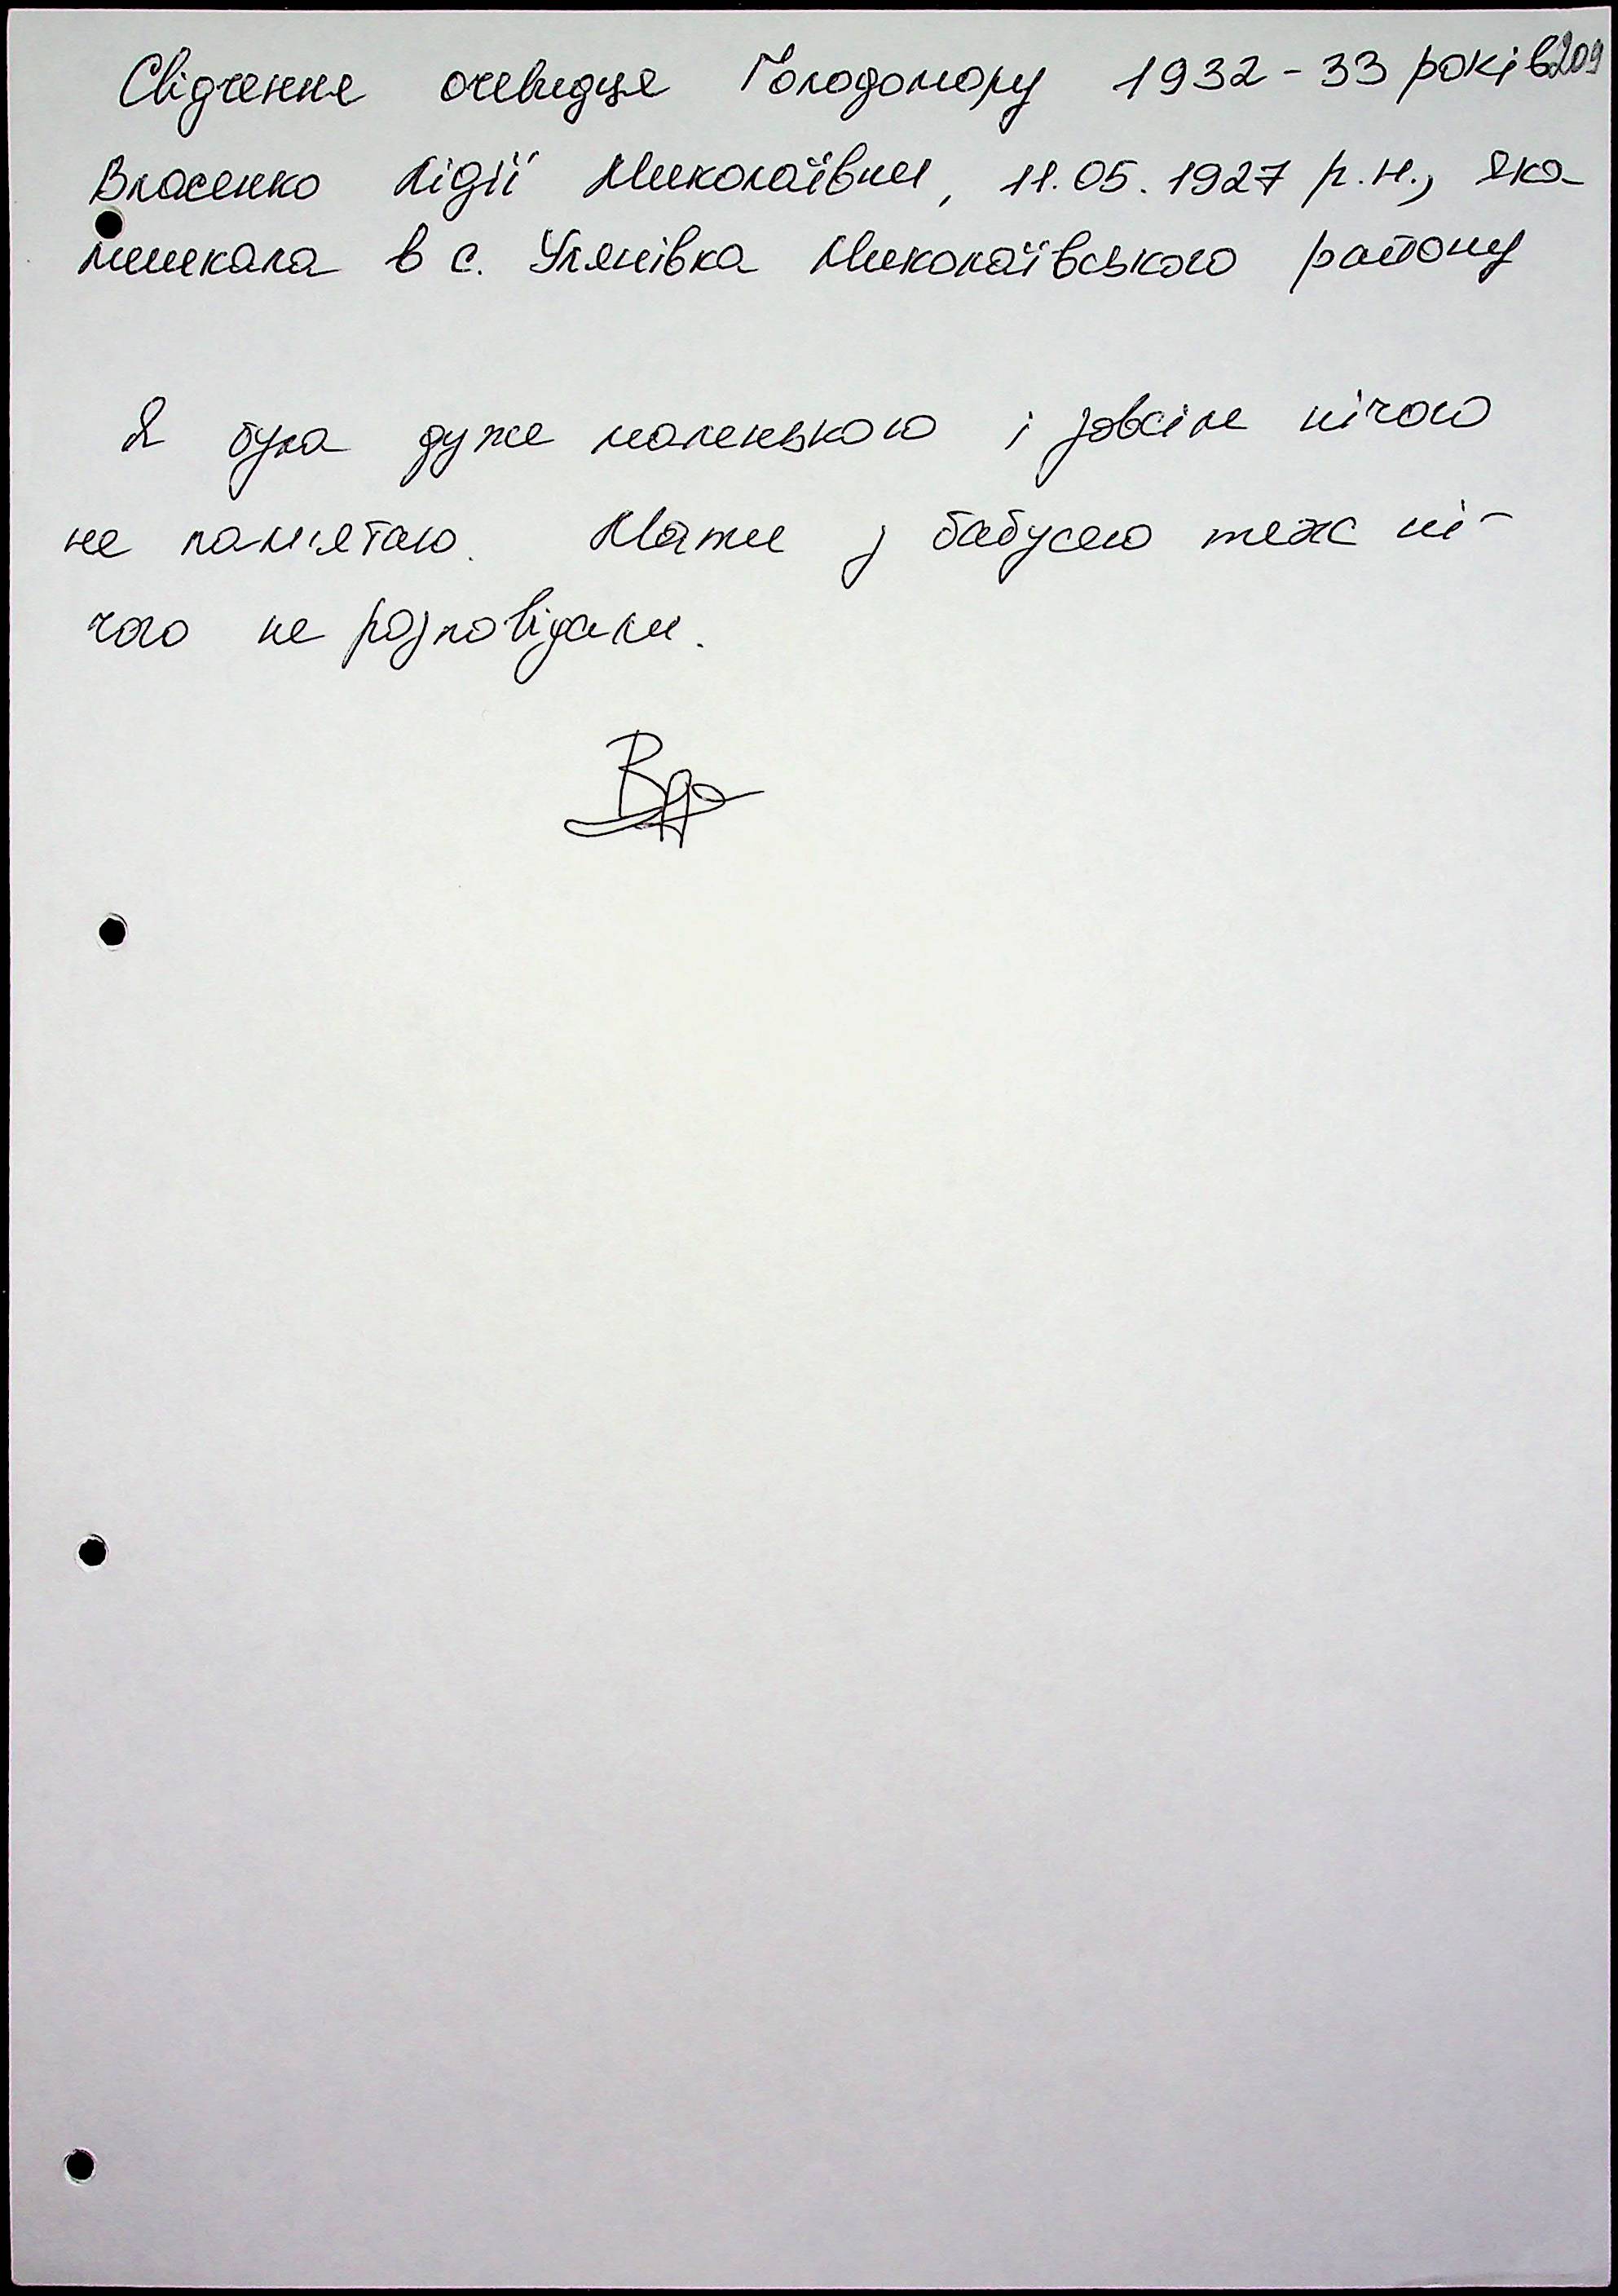 Свідчення очевидця Голодомору 1932-33 років 209
Власенко Лідії Миколаївни, 11.05.1927 р.н., яка
мешкала в с. Улянівка Миколаївського району
Я була дуже маленькою і зовсім нічого
не пам'ятаю. Мати з бабусею теж ні-
чого не розповідали.